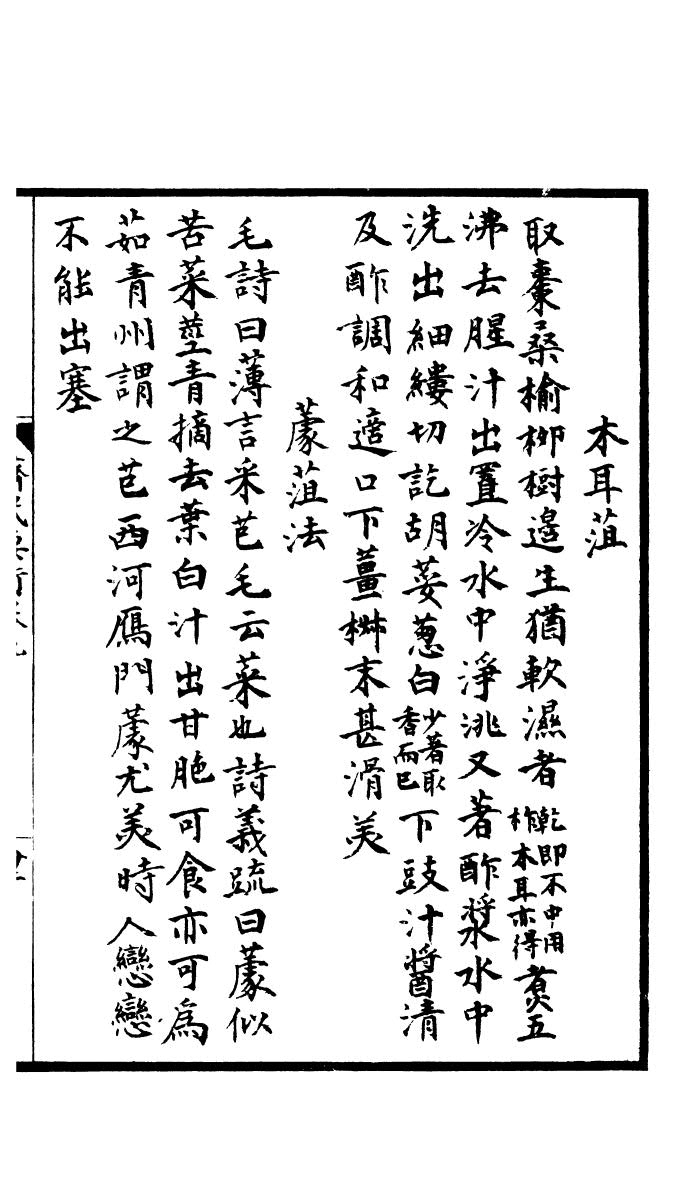 木耳菹
取棗桑榆柳樹邊生猶軟濕者乾即不中用柞木耳亦得煮五
沸去腥汁出置冷水中淨洮又著酢漿水中
洗出細縷切訖胡荽蔥白少著取香而已下豉汁醬清
及酢調和適口下薑椒末甚滑美
蘪菹法
毛詩曰薄言采芑毛云菜也詩義疏曰蘪似
苦菜莖青摘去葉白汁出甘脆可食亦可為
茹青州謂之芑西河鴈門蘪尤美時人戀戀
不能出塞